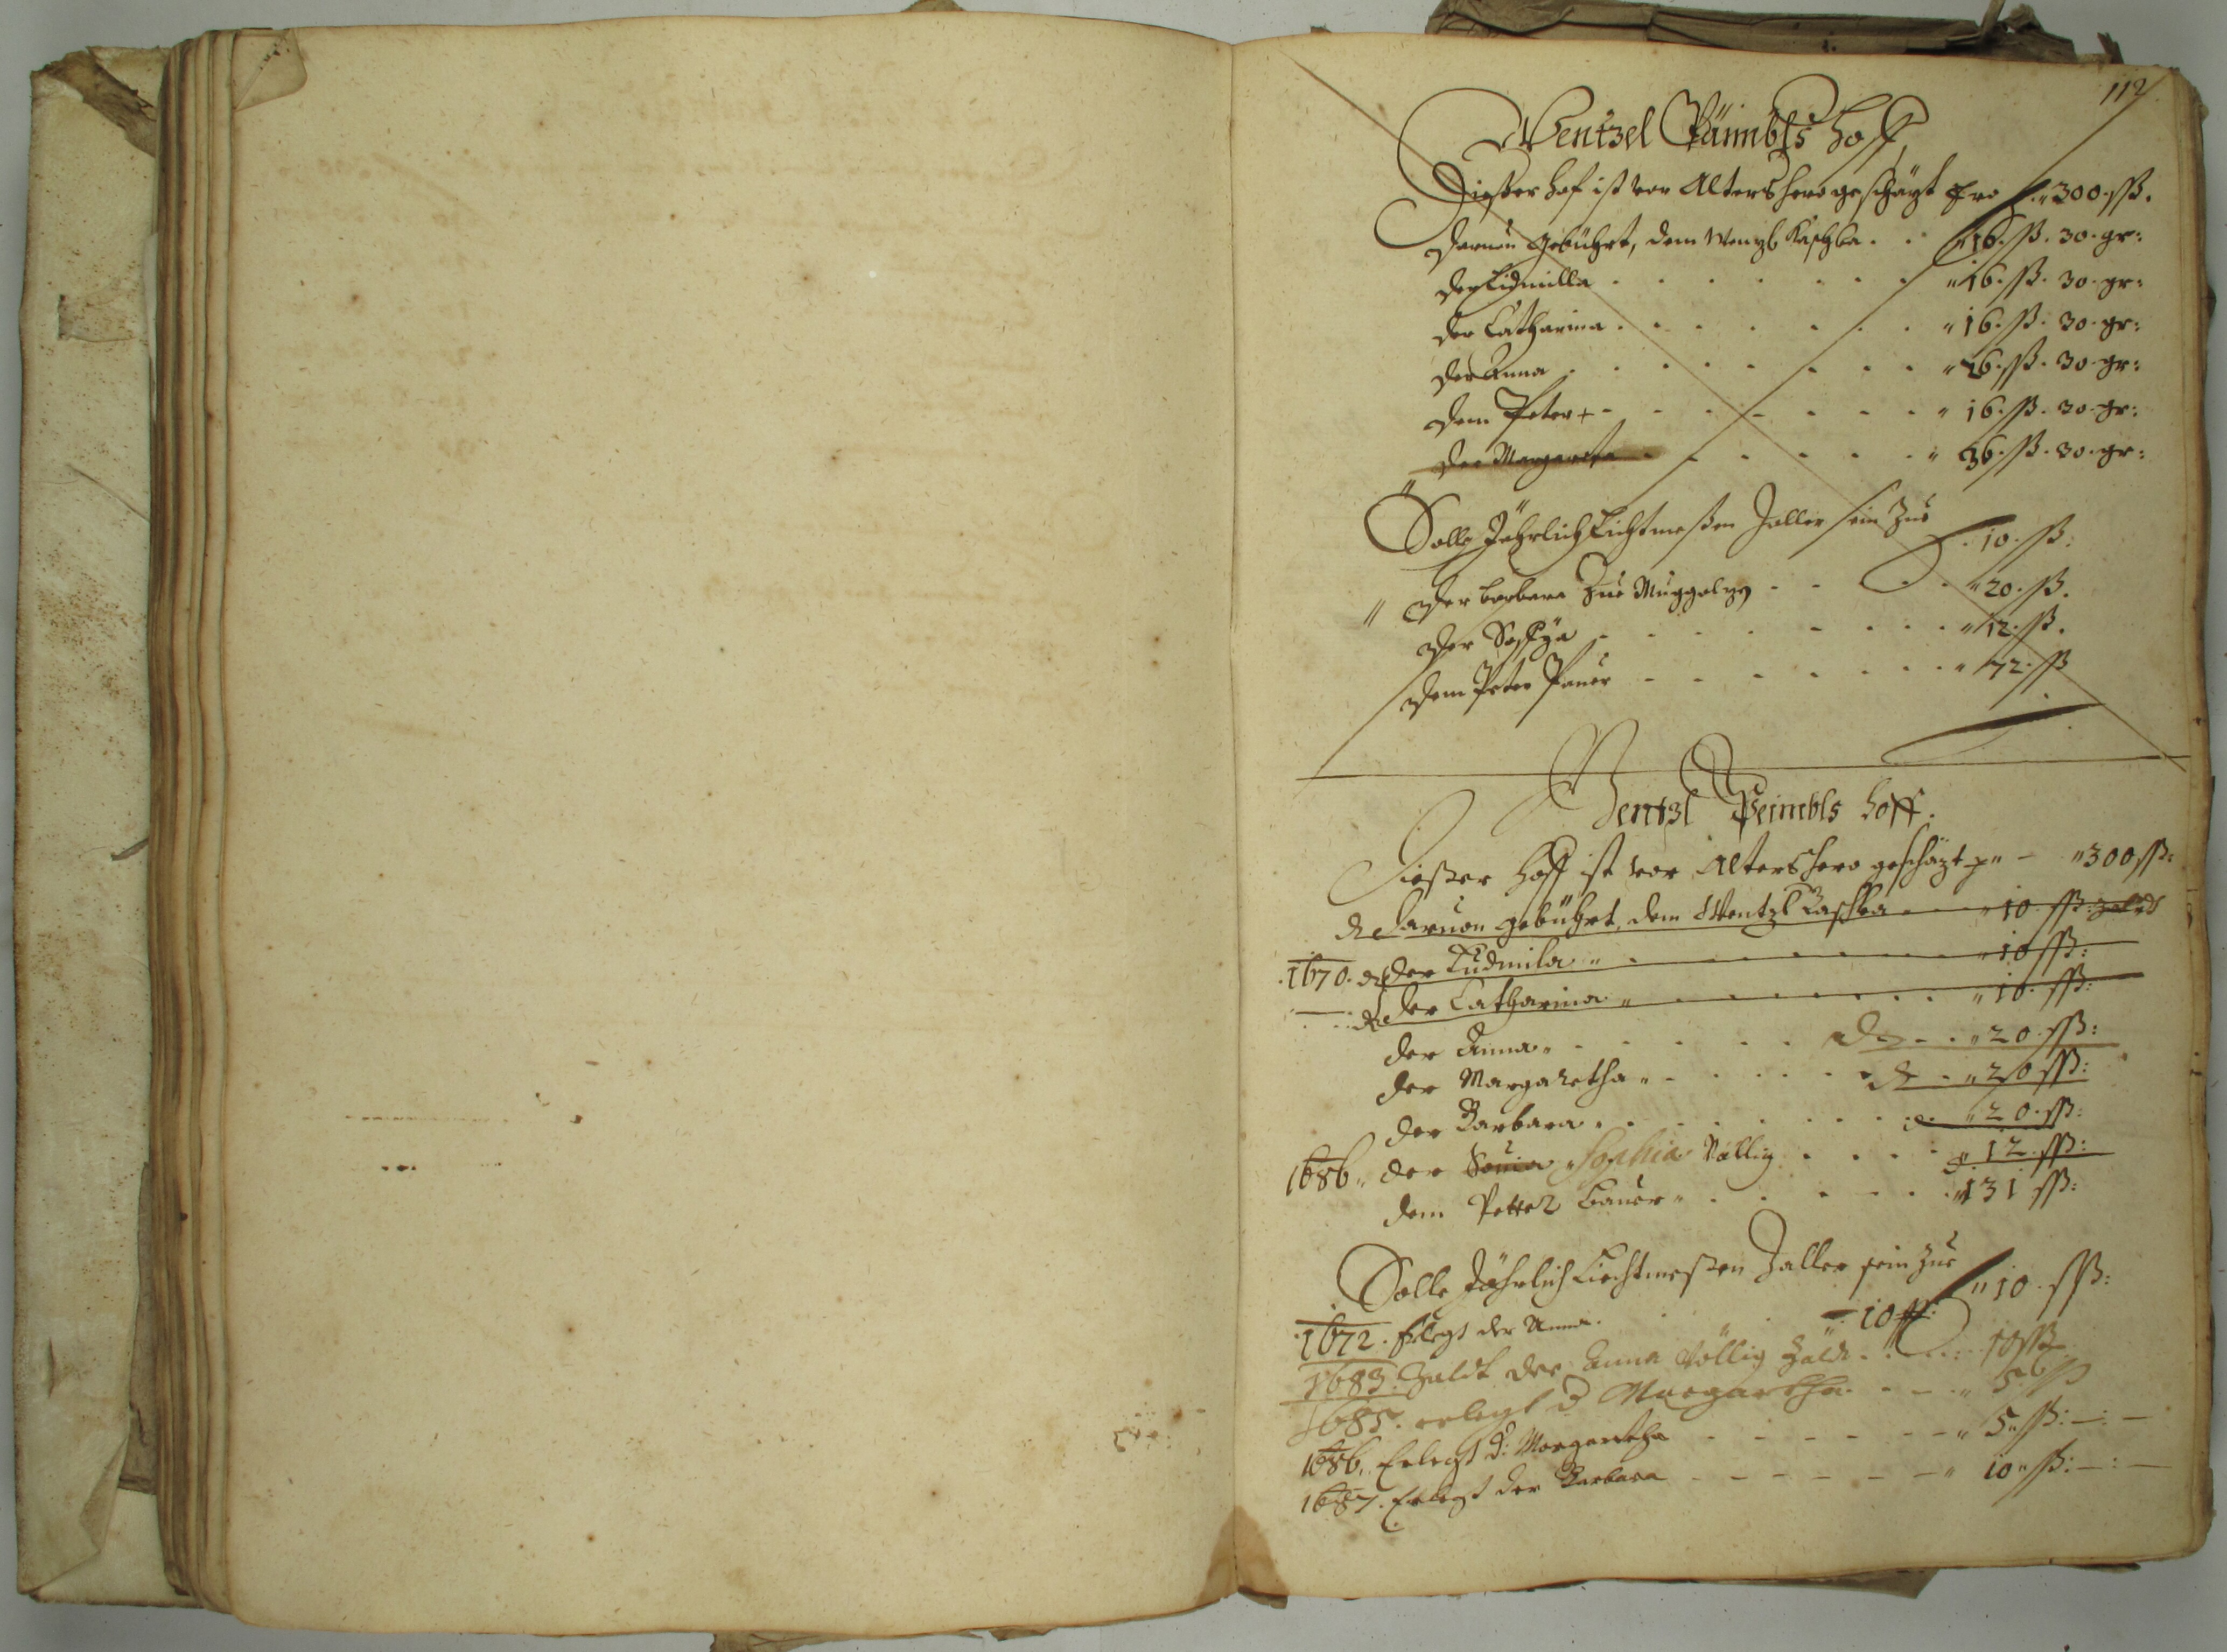 112
Wentzel Pämbls hoff
Dießer hof ist vor Alters hero geschäzt pro "300 ßß.
Daruon gebührt, dem Wentzl Kaschka . . "16. ßß. 30. gr:
der Lidmilla . . . "16. ßß. 30. gr:
der Catharina . . . "16. ßß. 30. gr:
der Anna . . . "16. ßß. 30. gr:
dem Peter + . . . "16. ßß. 30. gr:
der Margareta . . . "36. ßß. 30. gr:
Solle Jährlich Lichtmeßen Zaller sein Zue . 10. ßß:
der barbara Zue . . "20. ßß.
der . . . "12. ßß.
dem Peter Pauer . . . "72. ßß
Wentzl Peimbls hoff.
Dießer hoff ist vor Alters hero geschäzt p" - "300 ßß:
Daruon gebührt, dem Wentzl Kaschka . . "10 ßß:
1670. der Ludmila " . . . "10 ßß:
der Catharina " . . . "10. ßß:
der Anna " . . . "20. ßß:
der Margaretha " . . . "20 ßß:
der Barbara . . . "20. ßß:
1686. der Sophia Völlig . . . 12. ßß:
dem Petter Bauer " . . . "131 ßß:
Solle Jährlich Liechtmeßen Zaller sein Zue "10. ßß:
1672. Erlegt der Anna . . - 10 ßß:
1683. Zaldt der Anna Völlig . . . 10 ßß
1685. erlegt d Margaretha . - - " 5 ßß
1686. Erlegt d: Margaretha - - - " 5 " ßß: - : -
1687. Erlegt der Barbara - - - " 10 " ßß: - : -